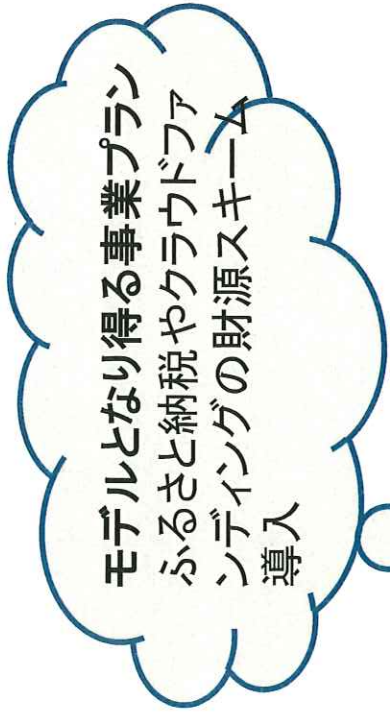 モデルとなり得る事業プラン
ふるさと納税やクラウドファ
ンディングの財源スキーム
導入